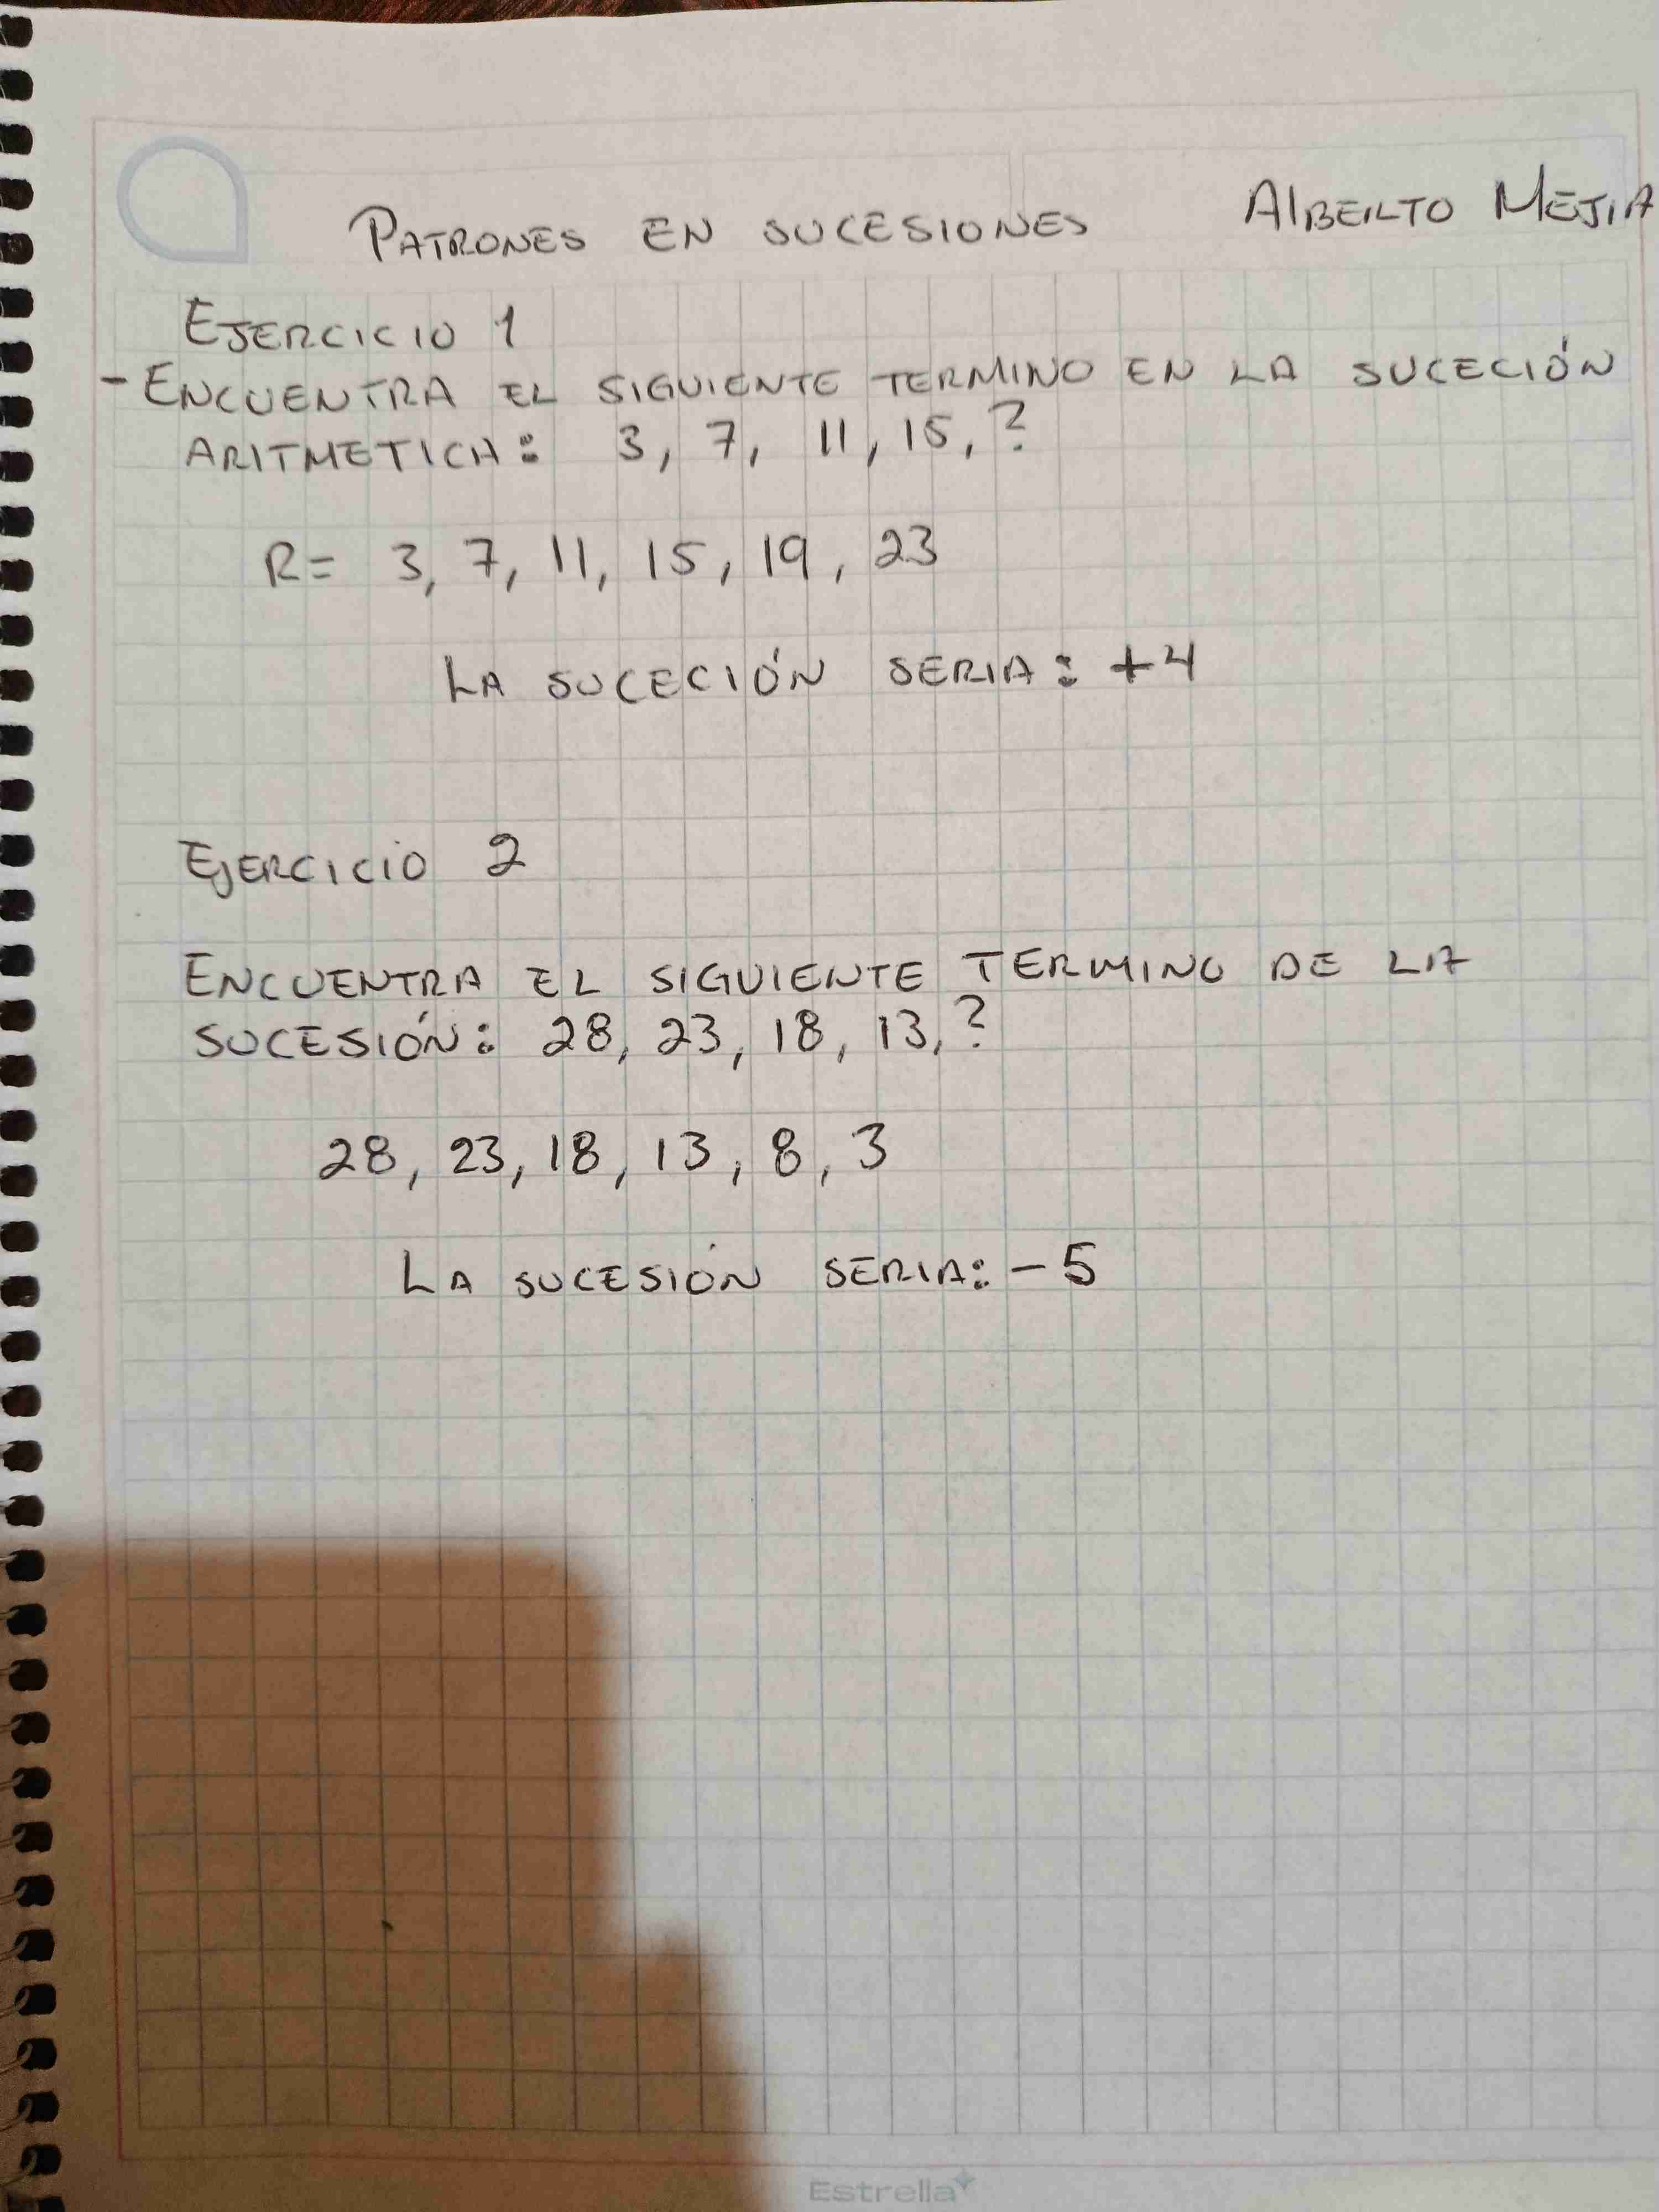 PATRONES EN SUCESIONES ALBERTO MEJIA
EJERCICIO 1
- ENCUENTRA EL SIGUIENTE TERMINO EN LA SUCECIÓN
ARITMETICA: 3, 7, 11, 15, ?
R= 3, 7, 11, 15, 19, 23
LA SUCECIÓN SERIA: +4
EJERCICIO 2
ENCUENTRA EL SIGUIENTE TERMINO DE LA
SUCESIÓN: 28, 23, 18, 13, ?
28, 23, 18, 13, 8, 3
LA SUCESIÓN SERIA: -5
Estrella